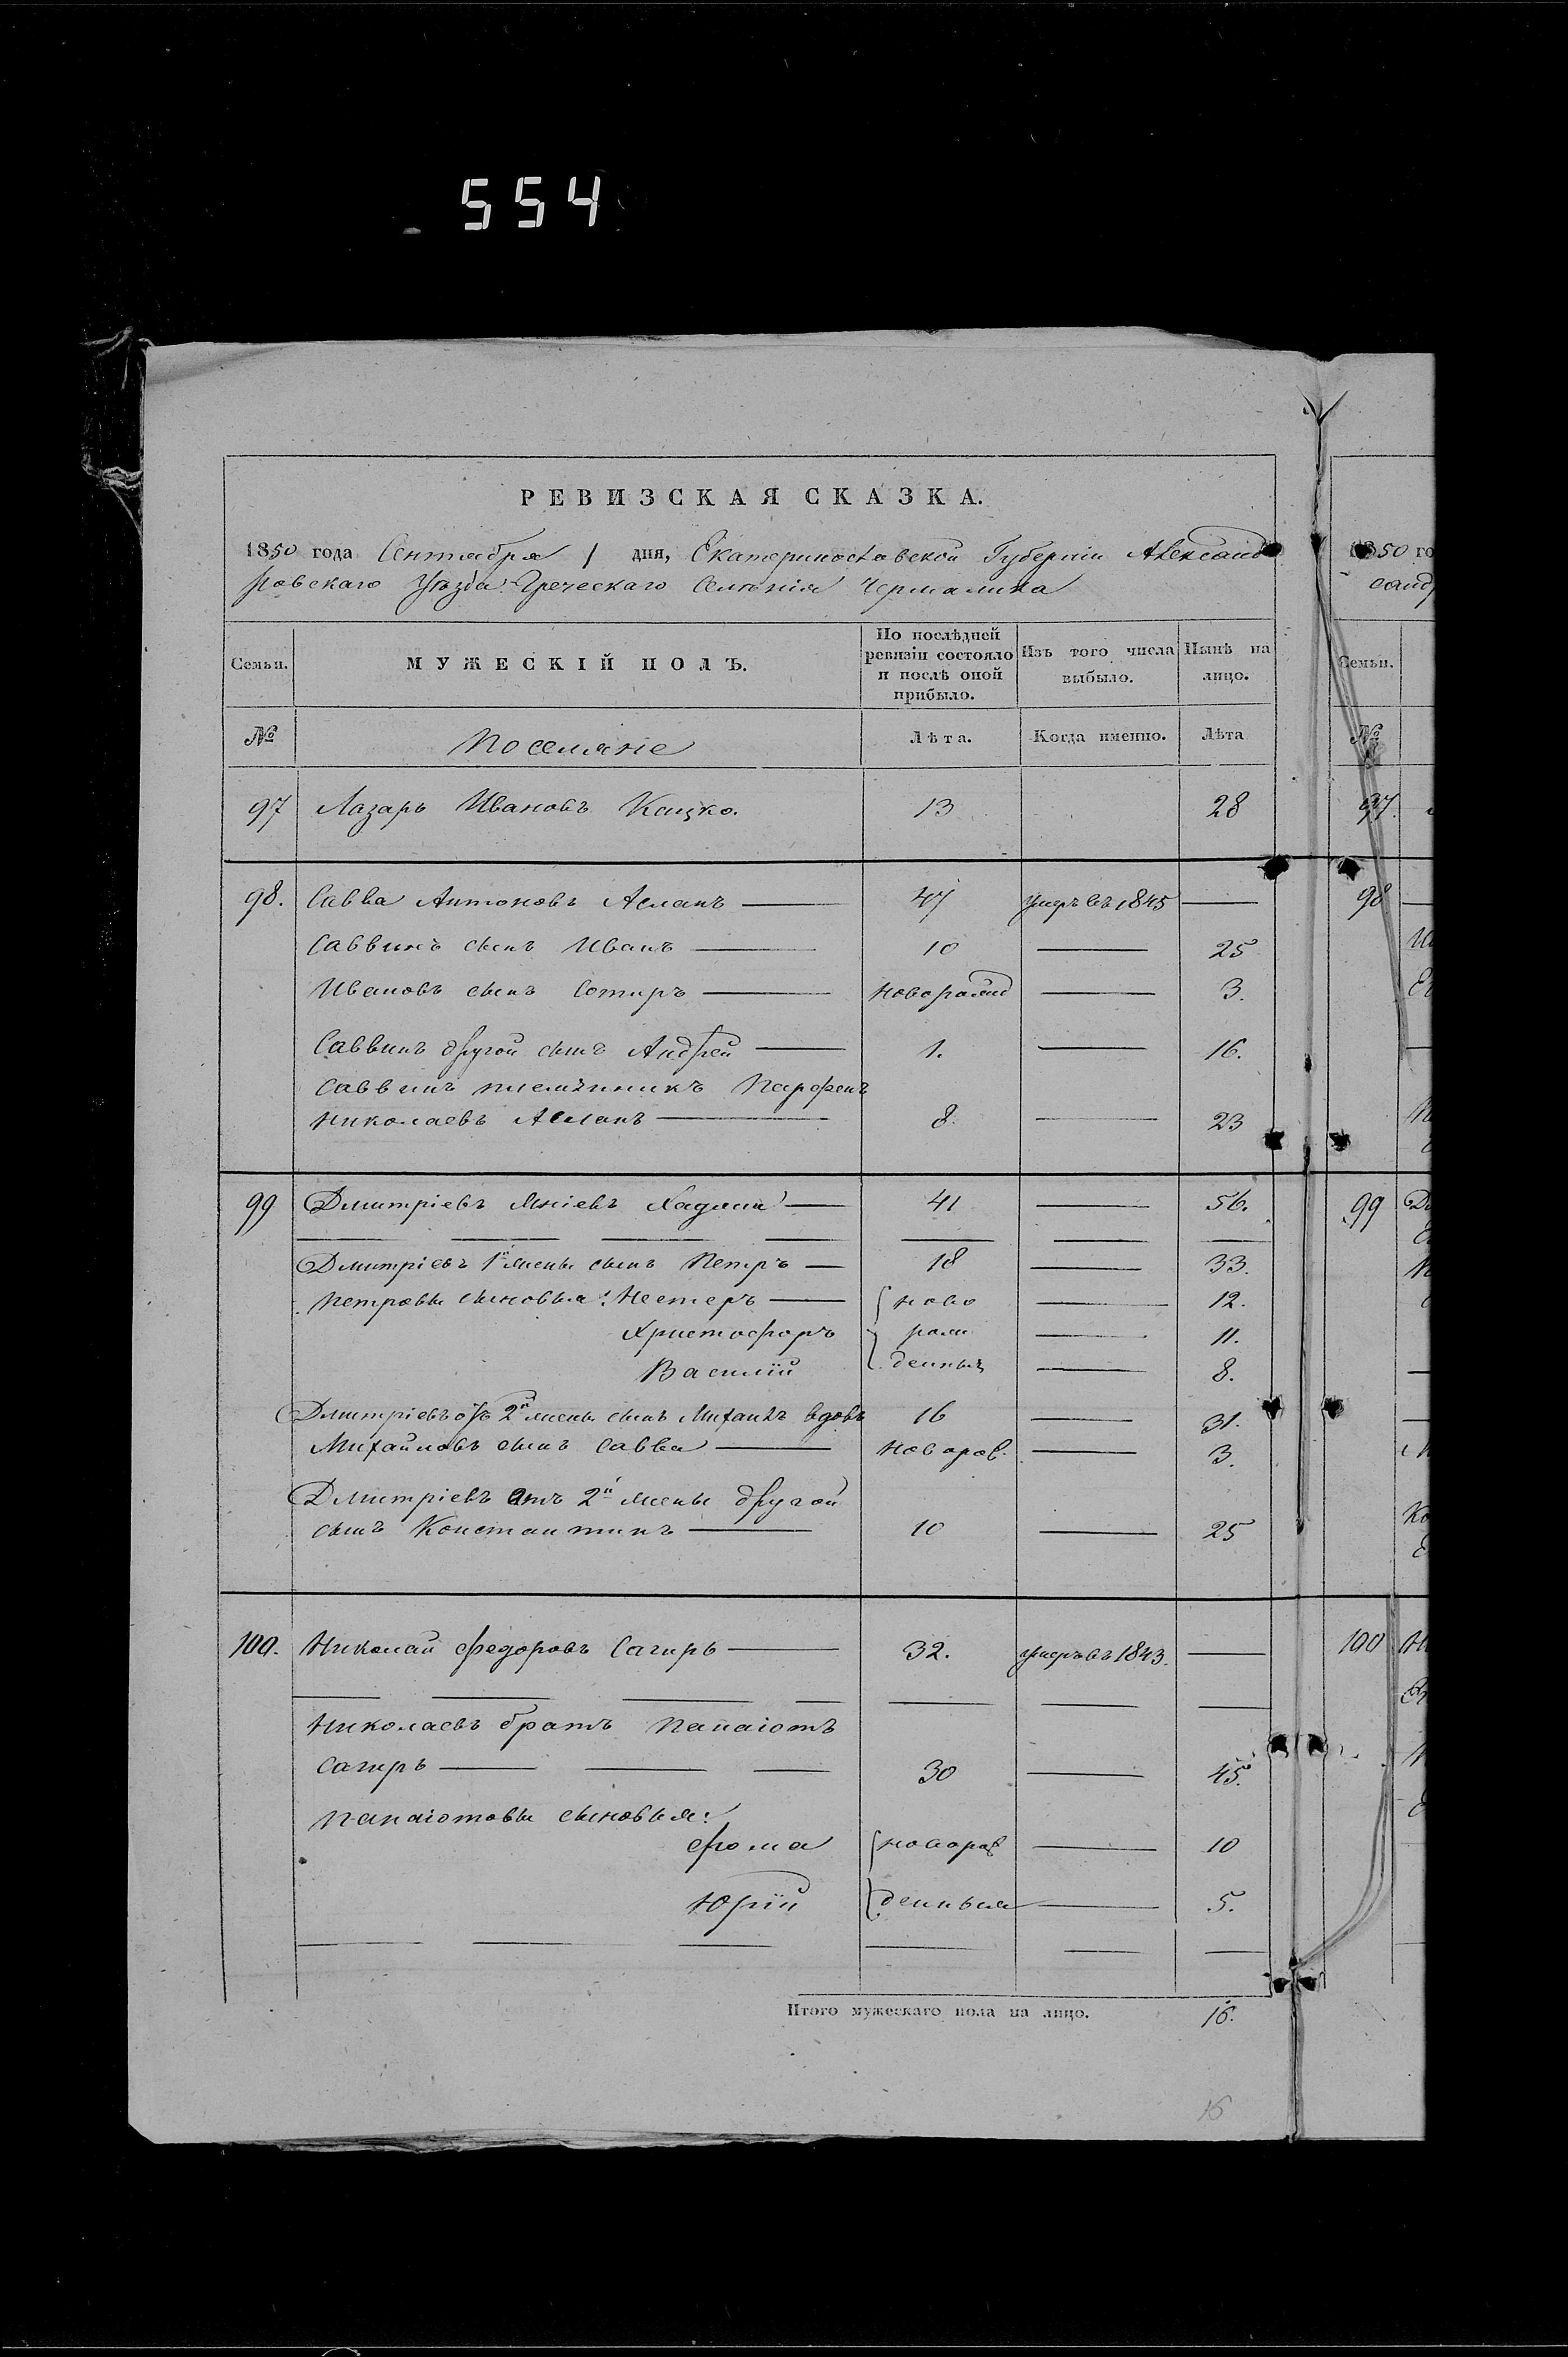 554
РЕВИЗСКАЯ СКАЗКА.
1850 года Сентября 1 дня, Екатеринославской Губерніи Александ
ровскаго Уѣзда Греческаго Селенія Чермалика
Семьи. МУЖЕСКІЙ ПОЛЪ. По послѣдней ревизіи состояло и послѣ оной прибыло. Изъ того числа выбыло. Нынѣ на лицо.
№ Поселяне Лѣта. Когда именно. Лѣта
97 Лазарь Ивановъ Кацко. 13 28
98. Савва Антоновъ Асланъ 47 умеръ въ 1845
Саввинъ сынъ Иванъ 10 25
Ивановъ сынъ Сотиръ новорожд 3.
Саввинъ другой сынъ Андрей 1. 16.
Саввинъ племянникъ Парфенъ
Николаевъ Асланъ 8. 23
99 Дмитріевъ Хаджи 41 56.
Дмитріевъ 1й жены сынъ Петръ 18 33.
Петровы сыновья: Нестеръ ново 12.
Христофоръ рож 11.
Василій денныя 8.
Дмитріевъ отъ 2й жены сынъ Михаилъ вдовъ 16 31.
Михайловъ сынъ Савва новорож. 3.
Дмитріевъ отъ 2й жены другой
сынъ Константинъ 10 25
100. Николай Федоровъ Сагиръ 32. умеръ въ 1843.
Николаевъ братъ Панаіотъ
Сагиръ 30 45.
Панаіотовы сыновья:
Фома новорож 10
Юрій денныя 5.
Итого мужескаго пола на лицо. 16.
16
1850 го
санд
Семьи.
№
97.
98
99
100